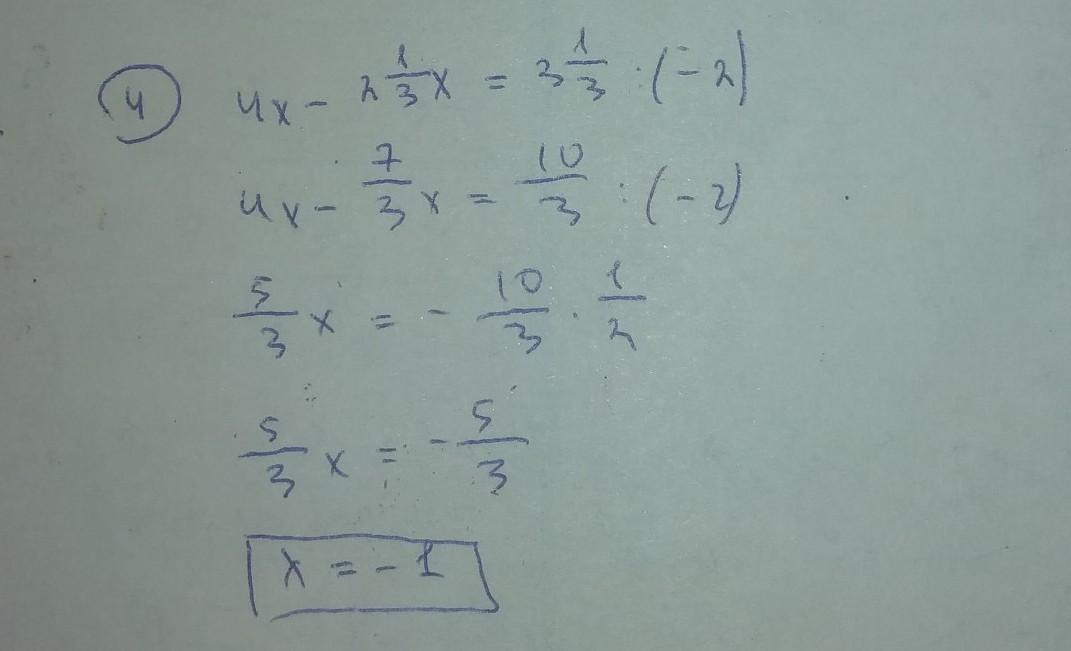 4 4x - 2 1/3 x = 3 1/3 : (-2)
4x - 7/3 x = 10/3 : (-2)
5/3 x = - 10/3 · 1/2
5/3 x = - 5/3
x = - 1